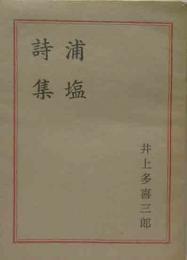 浦塩
詩集
井上多喜三郎